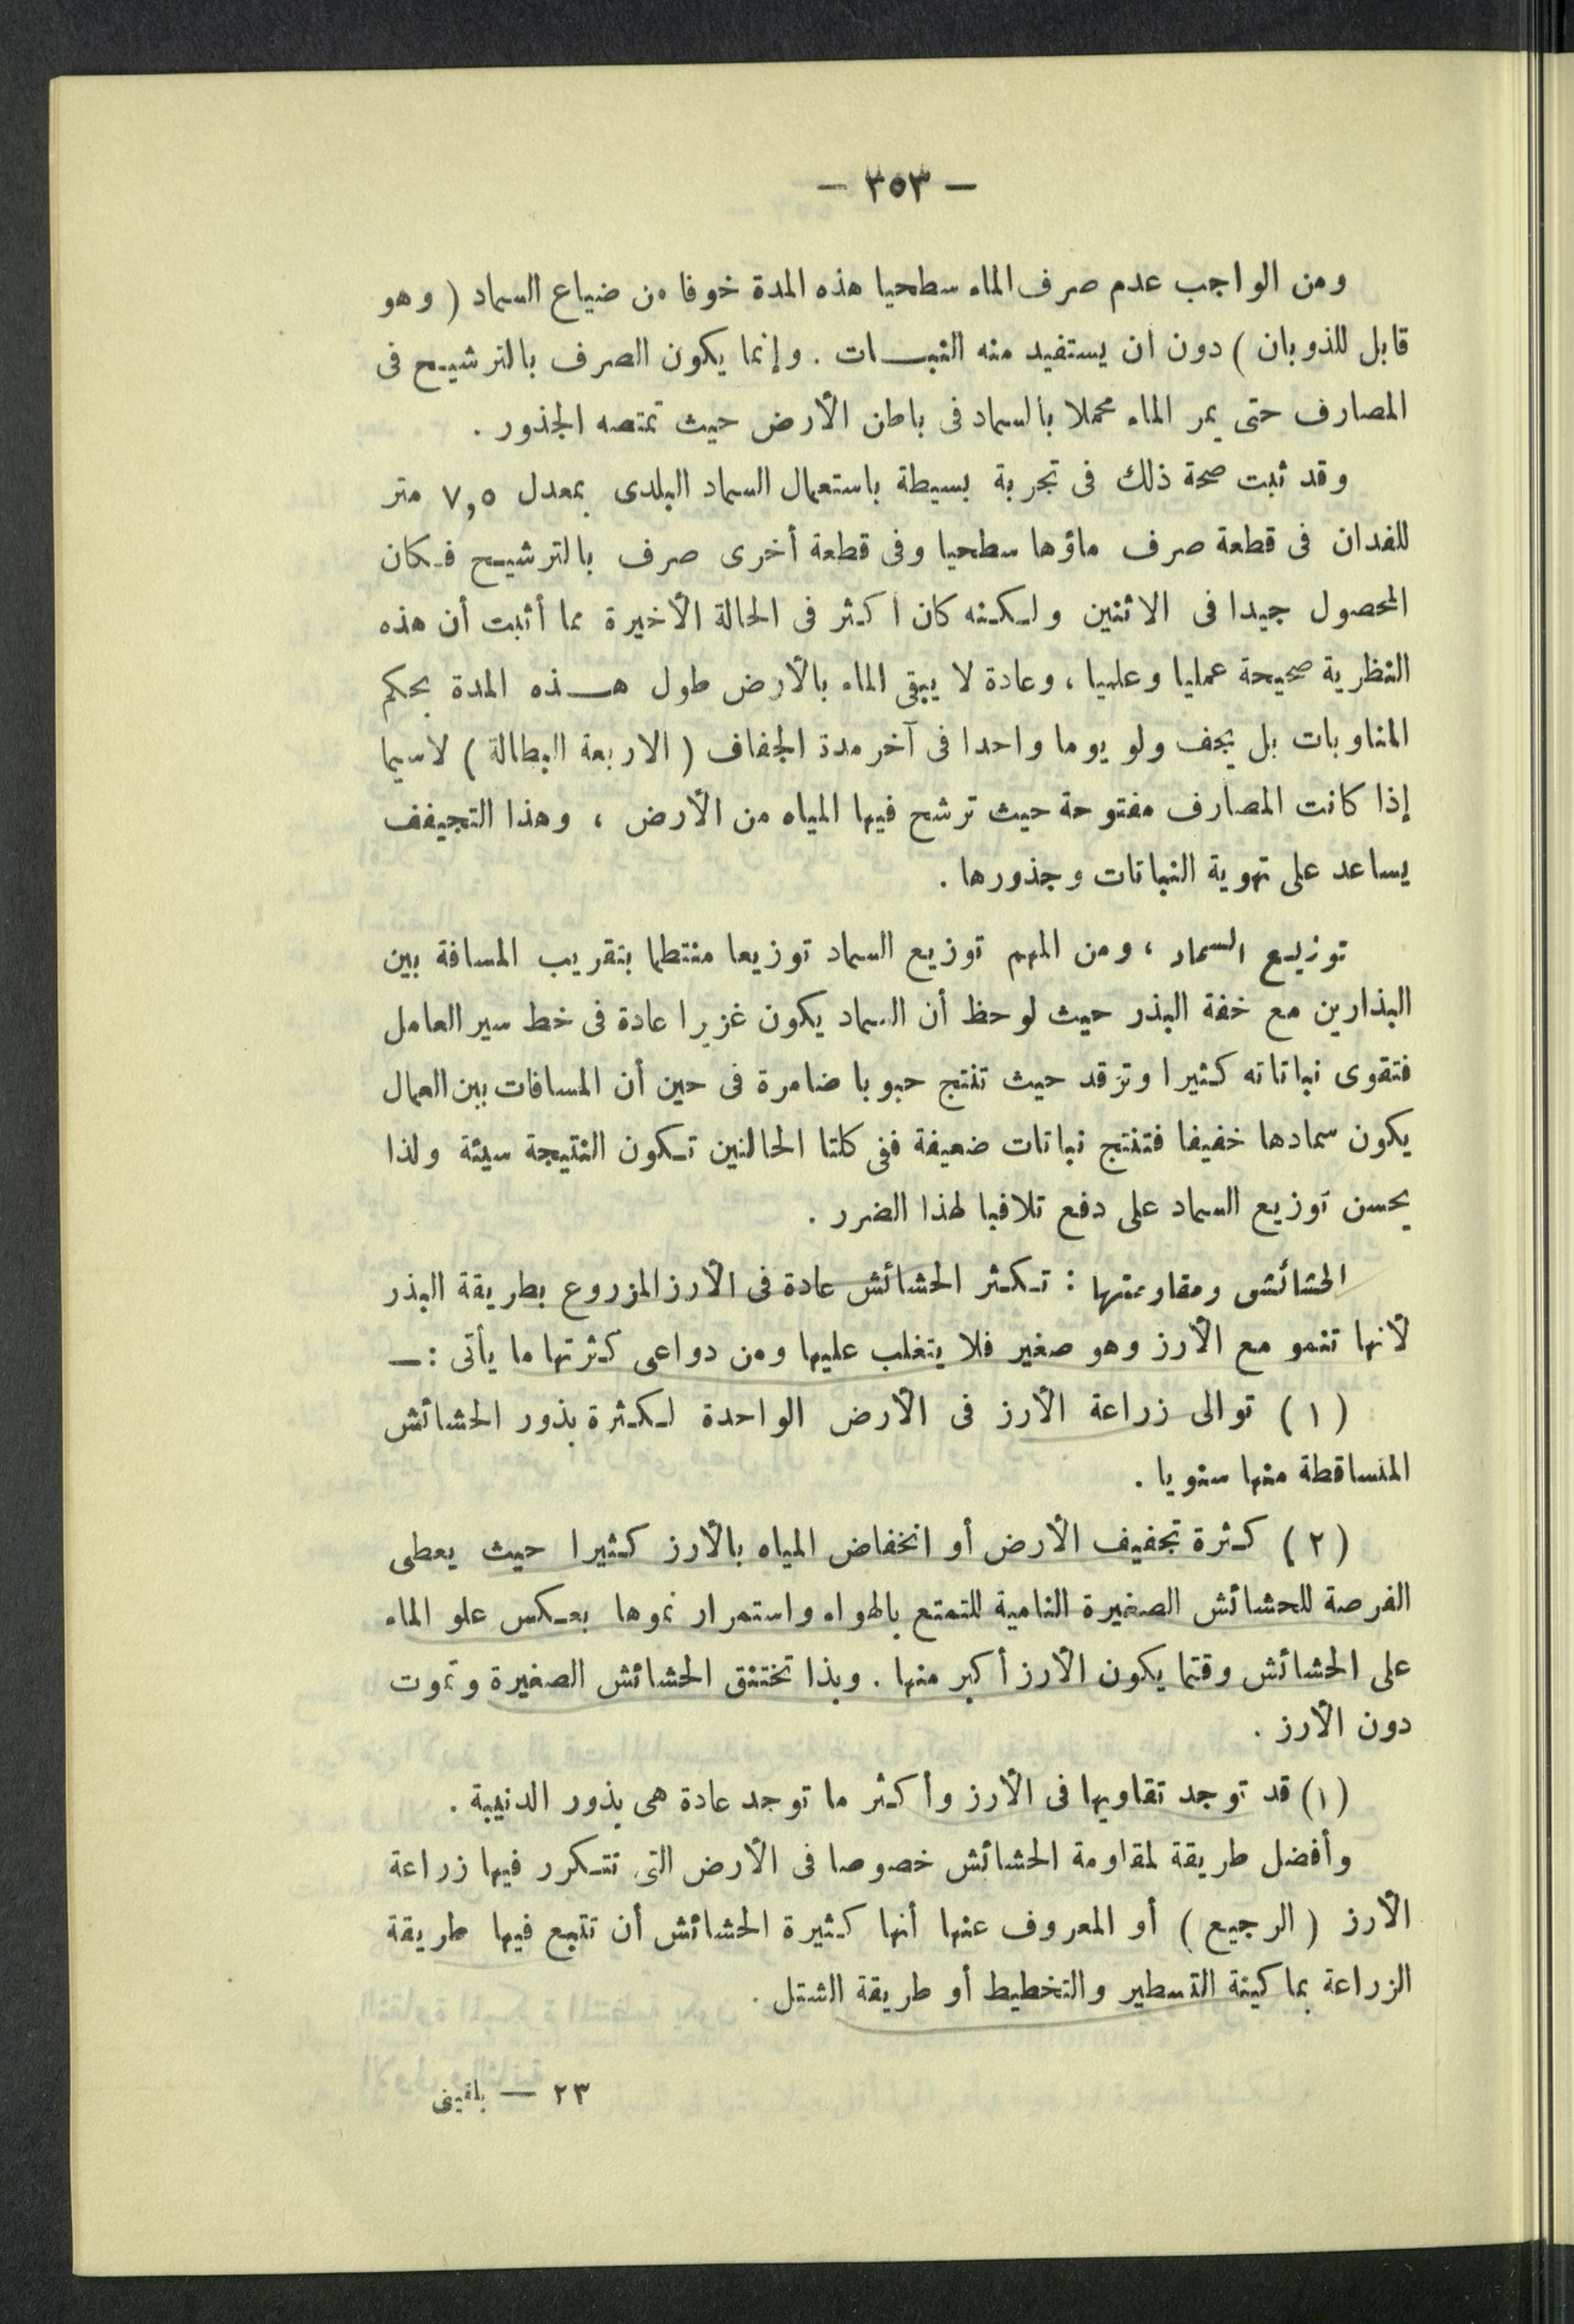 — ٣٥٣ —
ومن الواجب عدم صرف الماء سطحيا هذه المدة خوفا من ضياع السماد ( وهو
قابل للذوبان ) دون ان يستفيد منه النبات . وإنما يكون الصرف بالترشيح فى
المصارف حتى يمر الماء محملا بالسماد فى باطن الأرض حيث تمتصه الجذور .
وقد ثبت صحة ذلك فى تجربة بسيطة باستعمال السماد البلدى بمعدل ٧,٥ متر
للفدان فى قطعة صرف ماؤها سطحيا وفى قطعة أخرى صرف بالترشيح فكان
المحصول جيدا فى الاثنين ولكنه كان اكثر فى الحالة الأخيرة مما أثبت أن هذه
النظرية صحيحة عمليا وعلميا ، وعادة لا يبقى الماء بالأرض طول هذه المدة بحكم
المناوبات بل يجف ولو يوما واحدا فى آخر مدة الجفاف ( الاربعة البطالة ) لاسيما
إذا كانت المصارف مفتوحة حيث ترشح فيها المياه من الأرض ، وهذا التجيفف
يساعد على تهوية النباتات وجذورها .
توزيع السماد ، ومن المهم توزيع السماد توزيعا منتطما بتقريب المسافة بين
البذارين مع خفة البذر حيث لوحظ أن السماد يكون غزيرا عادة فى خط سير العامل
فتقوى نباتاته كثيرا وترقد حيث تنتج حبوبا ضامرة فى حين أن المسافات بين العمال
يكون سمادها خفيفا فتنتج نباتات ضعيفة ففى كلتا الحالتين تكون النتيجة سيئة ولذا
يحسن توزيع السماد على دفع تلافيا لهذا الضرر .
الحشائش ومقاومتها : تكثر الحشائش عادة فى الأرز المزروع بطريقة البذر
لأنها تنمو مع الأرز وهو صغير فلا يتغلب عليها ومن دواعى كثرتها ما يأتى : —
( ١ ) توالى زراعة الأرز فى الأرض الواحدة لكثرة بذور الحشائش
المتساقطة منها سنويا .
( ٢ ) كثرة تجفيف الأرض أو انخفاض المياه بالأرز كثيرا حيث يعطى
الفرصة للحشائش الصغيرة النامية للتمتع بالهواء واستمرار نموها بعكس علو الماء
على الحشائش وقتما يكون الأرز أكبر منها . وبذا تختنق الحشائش الصغيرة وتموت
دون الأرز .
(١) قد توجد تقاويها فى الأرز وأكثر ما توجد عادة هى بذور الدنيبة .
وأفضل طريقة لمقاومة الحشائش خصوصا فى الأرض التى تتكرر فيها زراعة
الأرز ( الرجيع ) أو المعروف عنها أنها كثيرة الحشائش أن تتبع فيها طريقة
الزراعة بماكينة التسطير والتخطيط أو طريقة الشتل .
٢٣ — بلقينى